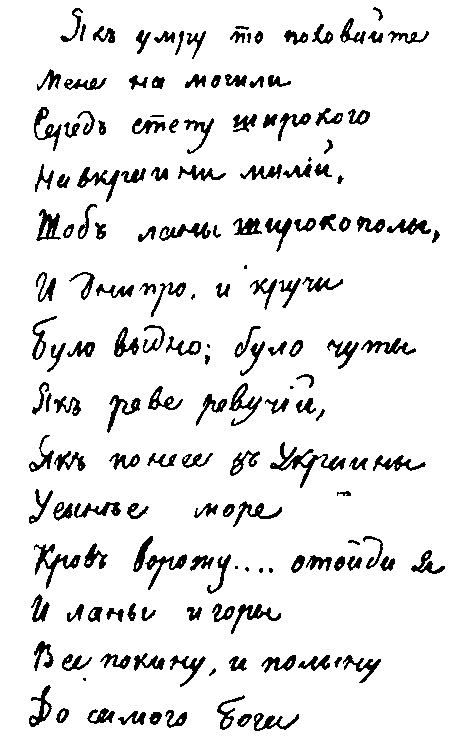 Якъ умру то поховайте
Мене на могили
Середъ степу широкого
На вкраини милій,
Щобъ ланы широкополы,
И Днипро, и кручи
Було выдно; було чуты
Якъ реве ревучій,
Якъ понесе зъ Украины
У сынъе море
Кровъ ворожу.... отойди я
И ланы и горы
Все покину, и полыну
До самого Бога